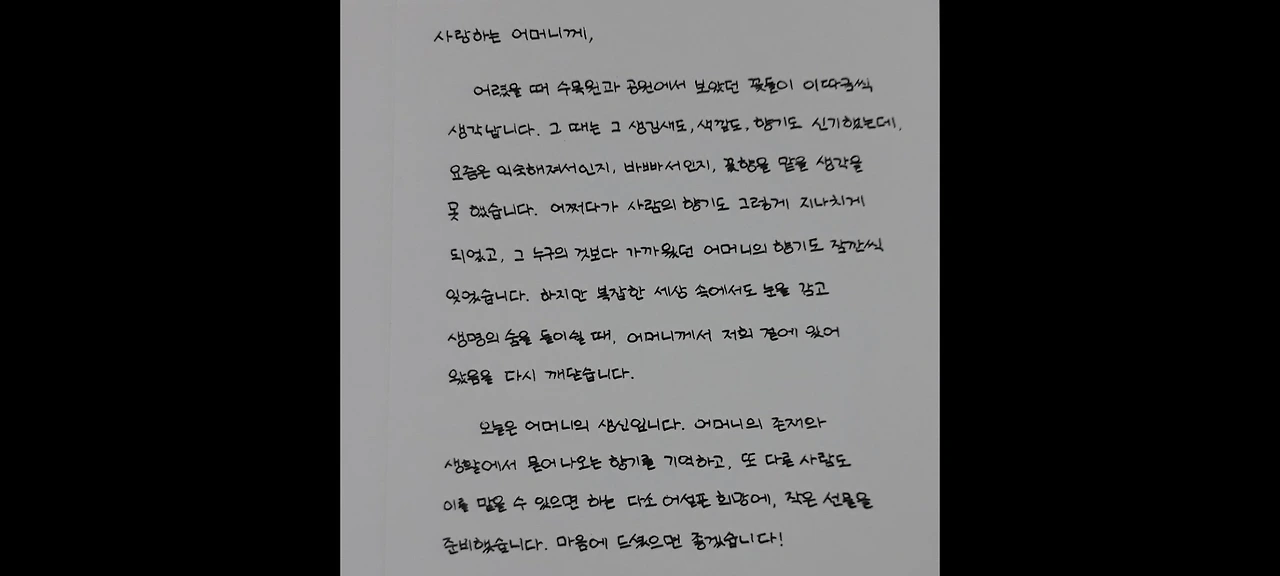 사랑하는 어머니께,
어렸을 때 수목원과 공원에서 보았던 꽃들이 이따금씩
생각납니다. 그 때는 그 생김새도, 색깔도, 향기도 신기했는데,
요즘은 익숙해져서인지, 바빠서인지, 꽃향을 맡을 생각을
못 했습니다. 어쩌다가 사람의 향기도 그렇게 지나치게
되었고, 그 누구의 것보다 가까웠던 어머니의 향기도 잠깐씩
잊었습니다. 하지만 복잡한 세상 속에서도 눈을 감고
생명의 숨을 들이쉴 때, 어머니께서 저희 곁에 있어
왔음을 다시 깨닫습니다.
오늘은 어머니의 생신입니다. 어머니의 존재와
생활에서 묻어나오는 향기를 기억하고, 또 다른 사람도
이를 맡을 수 있으면 하는 다소 어설픈 희망에, 작은 선물을
준비했습니다. 마음에 드셨으면 좋겠습니다!